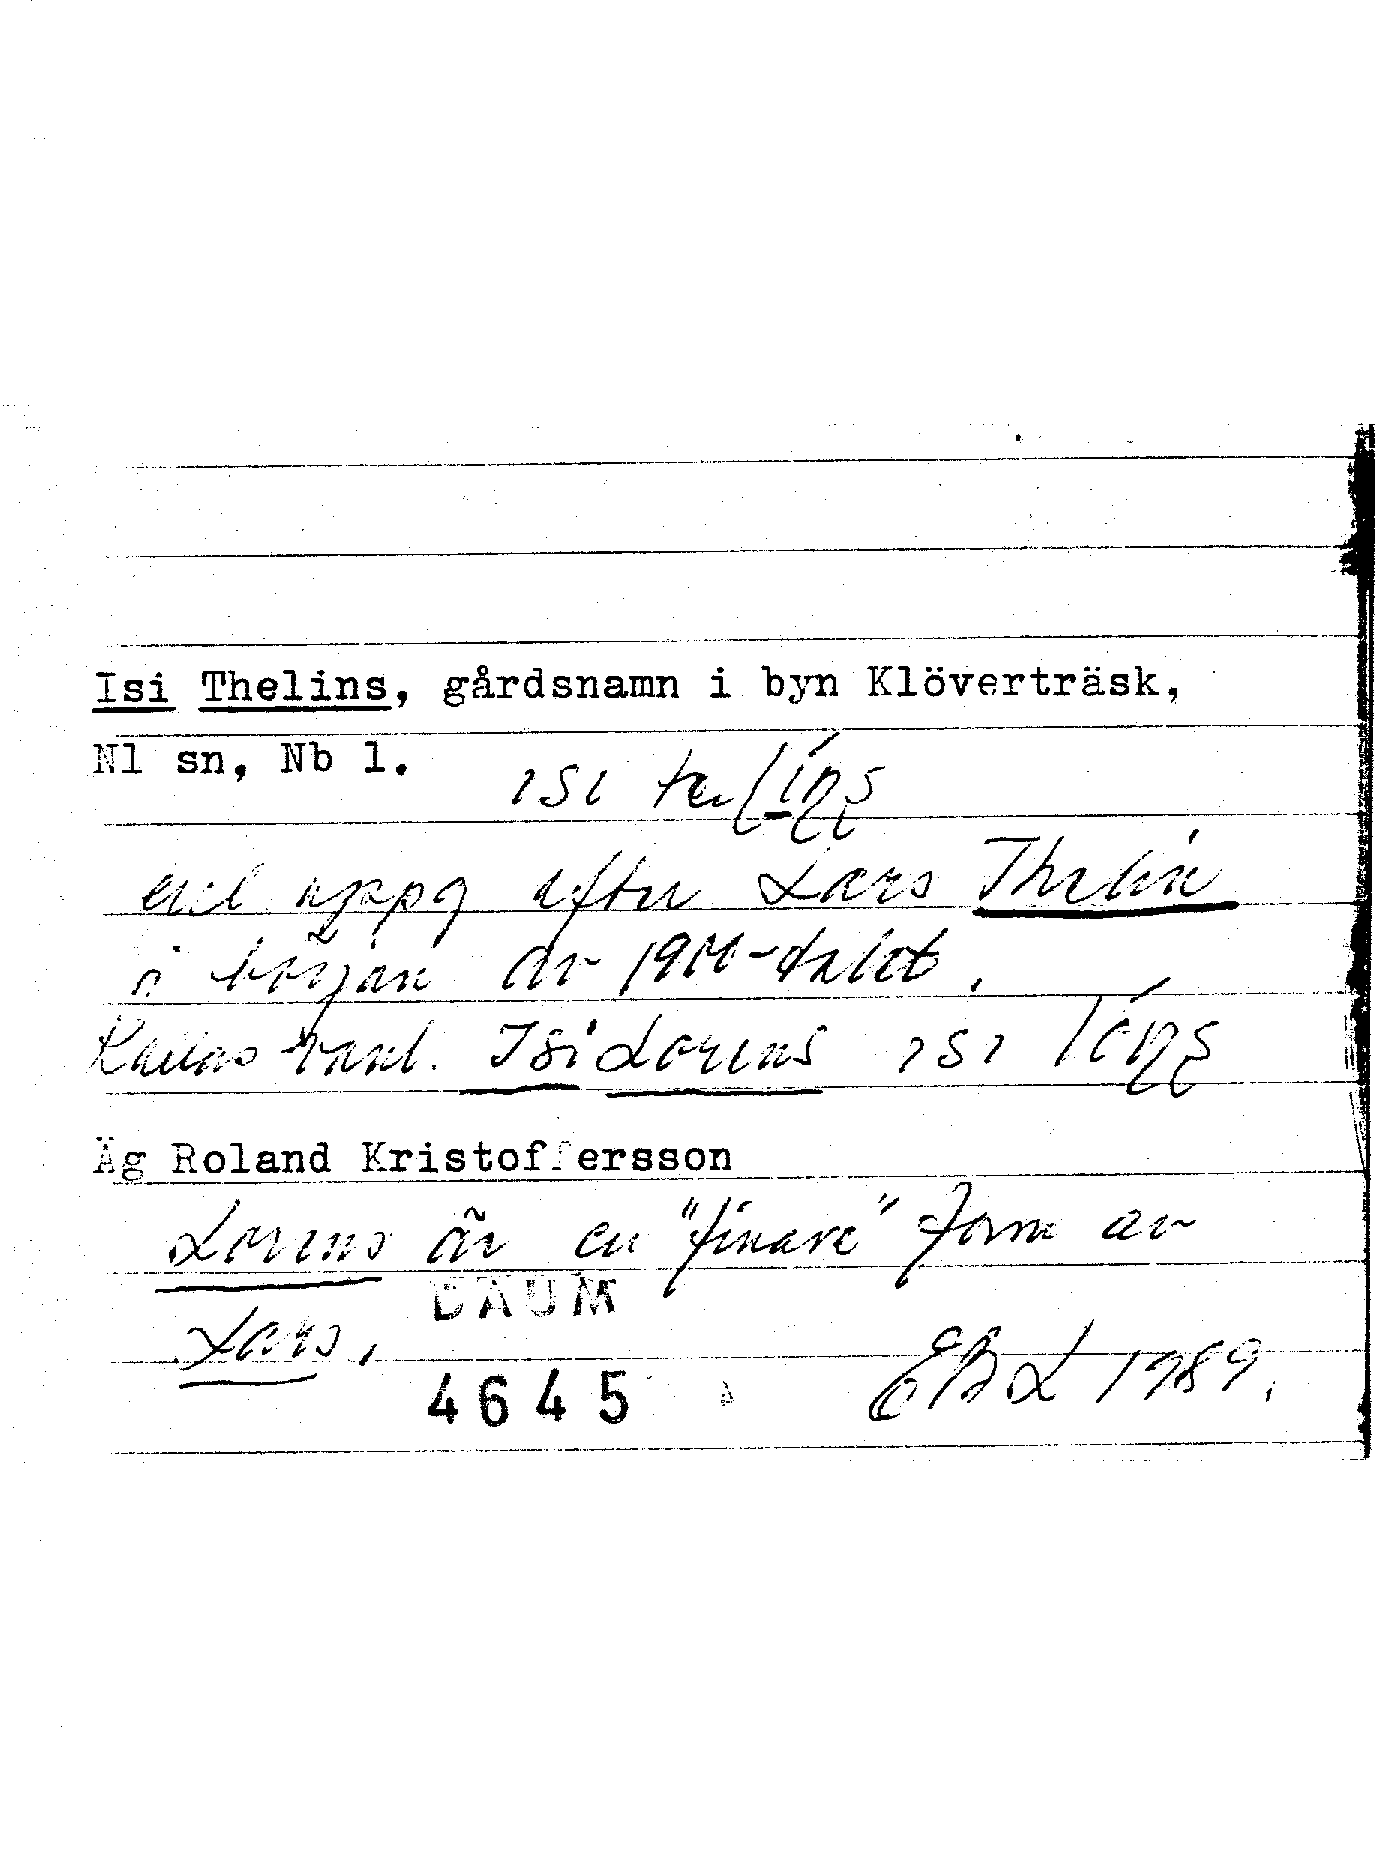 Isi Thelins, gårdsnamn i byn Klöverträsk,
Nl sn, Nb l. ısı
enl uppg efter Lars Thelin
i början av 1900-talet.
Kallas vanl. Isi Lorens ısı
Äg Roland Kristoffersson
Lorens är en "finare" form av
Lars.
DAUM
4645 EBL 1989.